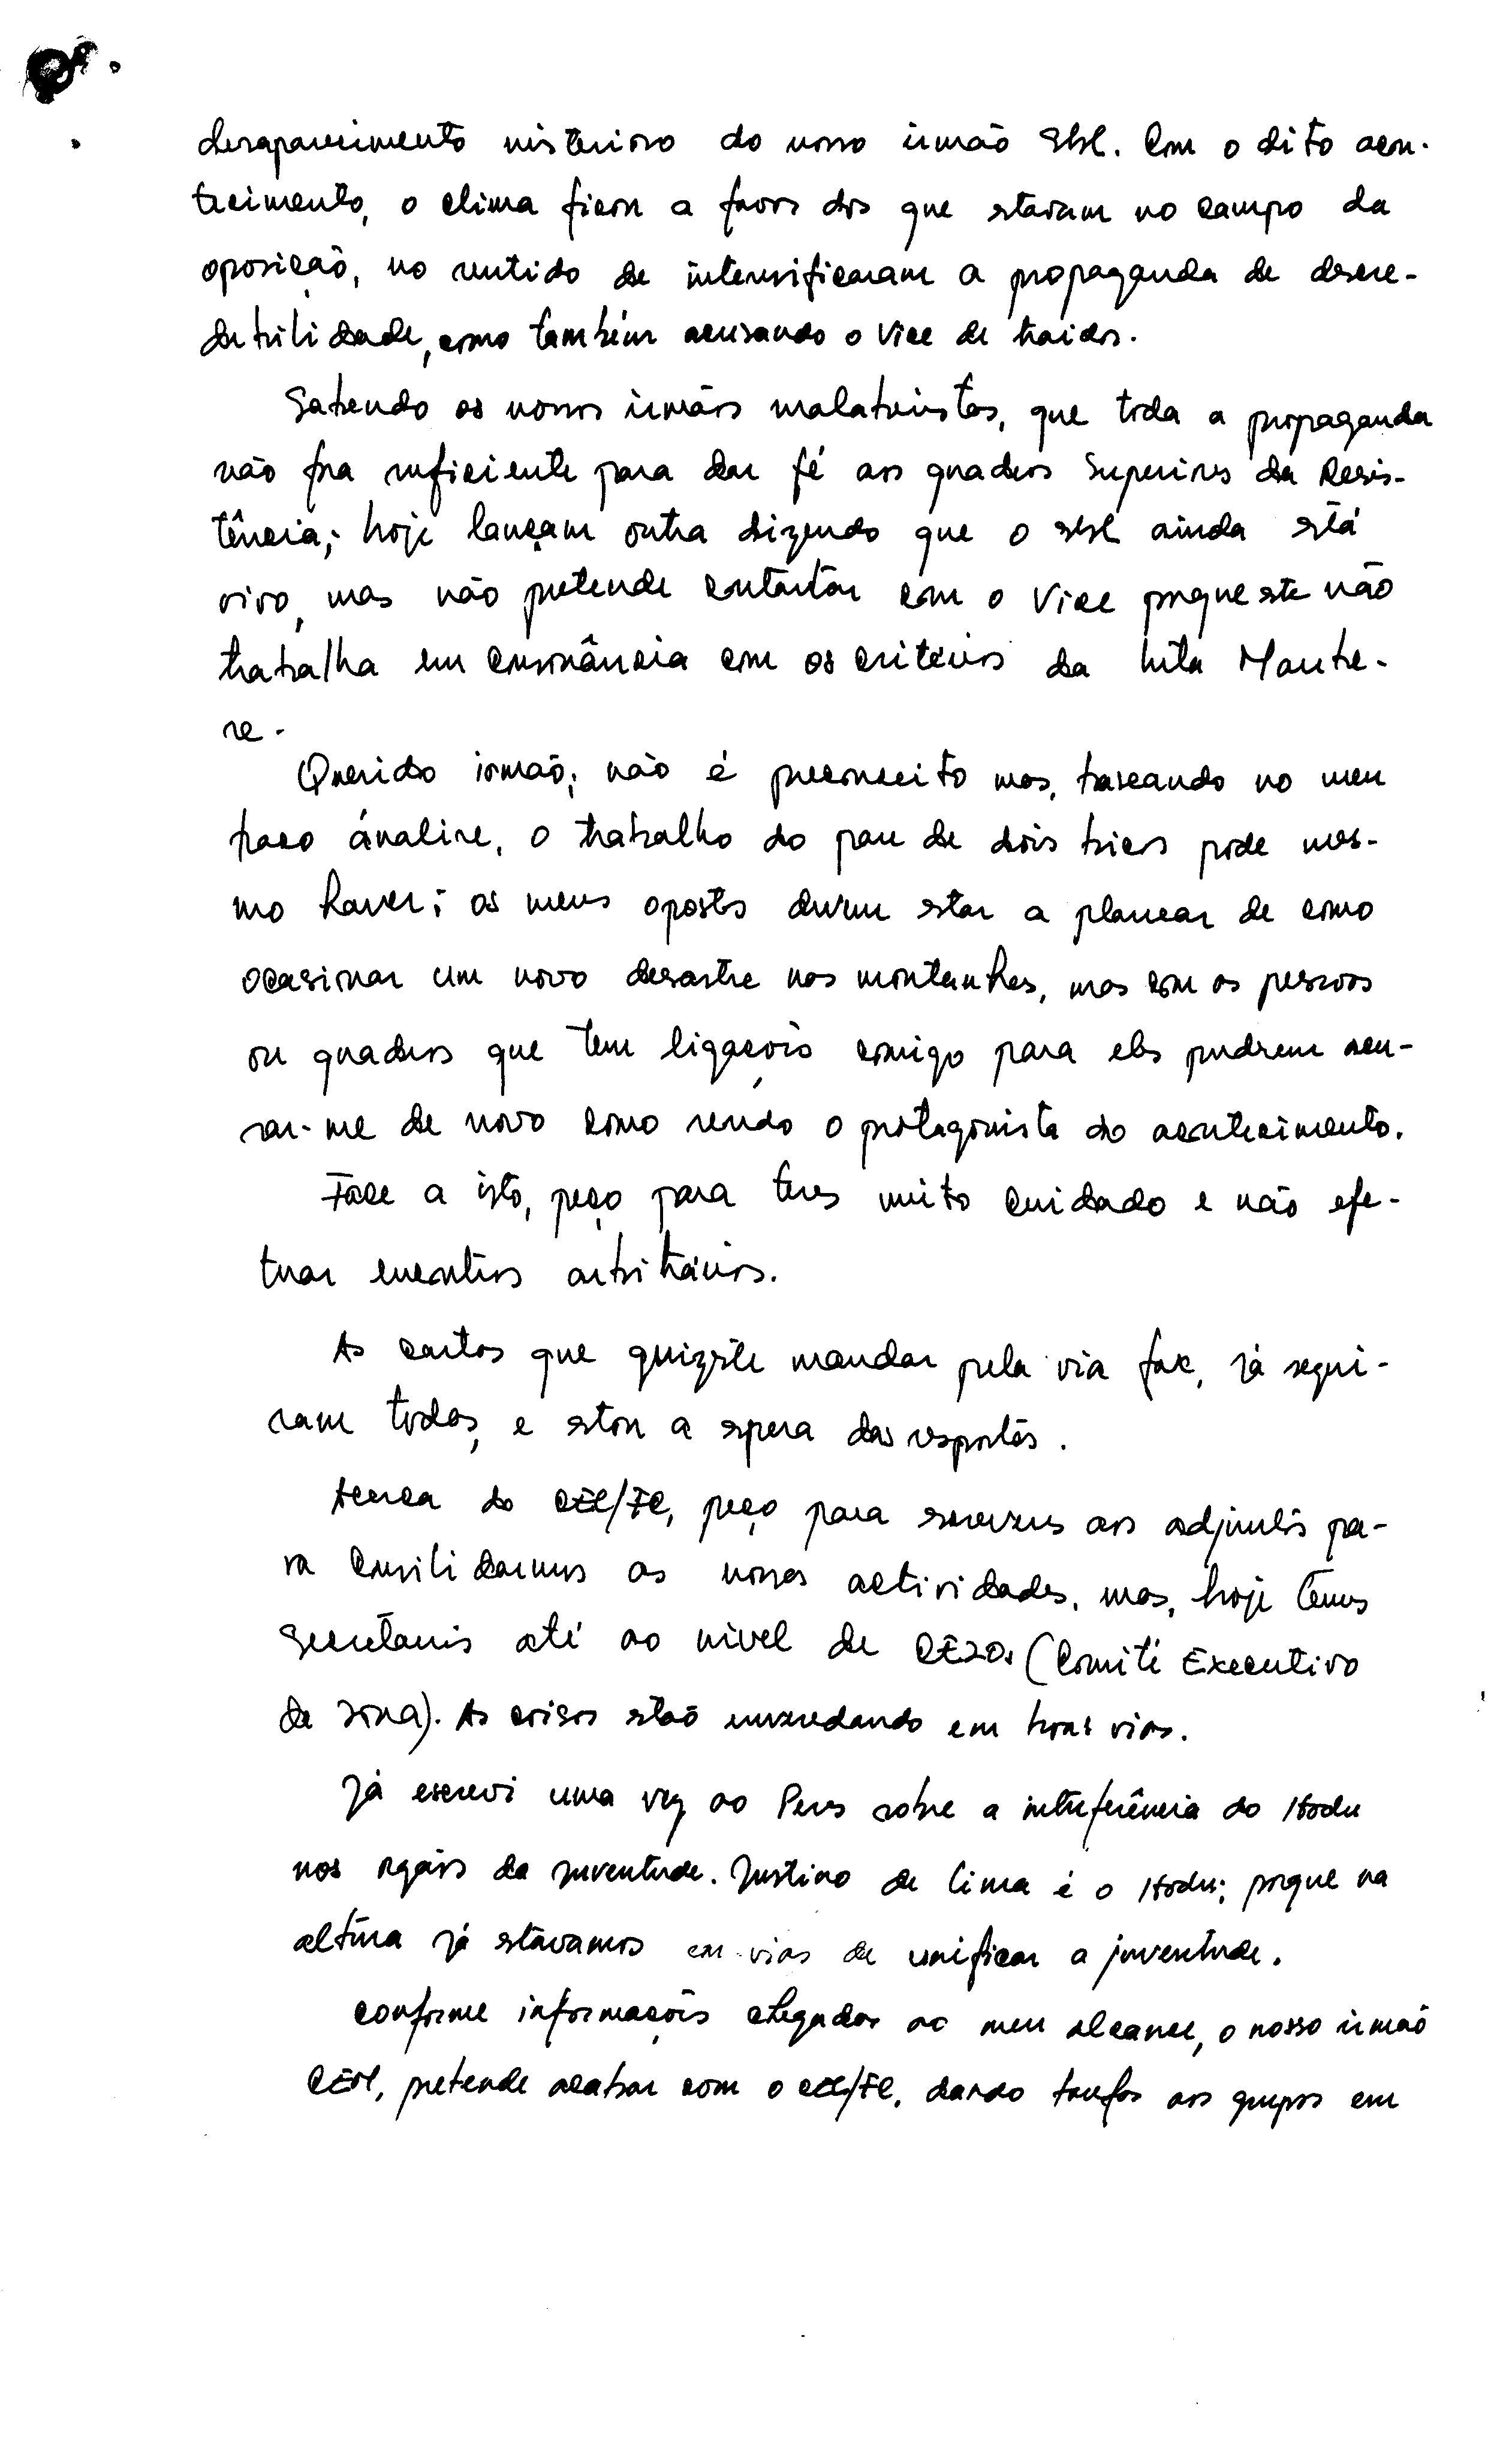 desaparecimento misterioso do nosso irmão Sbl. Com o dito acon-
tecimento, o clima ficou a favor dos que estavam no campo da
oposição, no sentido de intensificaram a propaganda de descre-
debilidade, como também acusando o Vice de traidor.
Sabendo os nossos irmãos malabeiristas, que toda a propaganda
não fora suficiente para dar fé aos quadros Superiores da Resis-
tência; hoje lançam outra dizendo que o sbl ainda está
vivo, mas não pretende contactar com o Vice porque este não
trabalha em consonância com os critérios da luta Maube-
re.
Querido irmão; não é preconceito mas, baseando no meu
fraco ánalise, o trabalho do pau de dois bicos pode mes-
mo haver; os meus opostos devem estar a planear de como
ocasionar um novo desastre nas montanhas, mas com as pessoas
ou quadros que tem ligações comigo para eles puderem acu-
sar-me de novo como sendo o protagonista do acontecimento.
Face a isto, peço para teres muito cuidado e não efe-
tuar encontros arbitrários.
As cartas que quizeste mandar pela via fax, já segui-
ram todas, e estou a espera das respostas.
Acerca do CEL/FC, peço para escreveres aos adjuntos pa-
ra consilidarmos as nossas actividades, mas, hoje temos
Secretários até ao nível de CEZOs (Comité Executivo
de zona). As coisas estão enveredando em boas vias.
Já escrevi uma vez ao Peres sobre a interferência do Hodu
nos orgãos da juventude. Justino de Lima é o Hodu; porque na
altura já estavamos em vias de unificar a juventude.
Conforme informações chegadas ao meu alcance, o nosso irmão
pretende acabar com o CEL/FC, dando aos grupos em